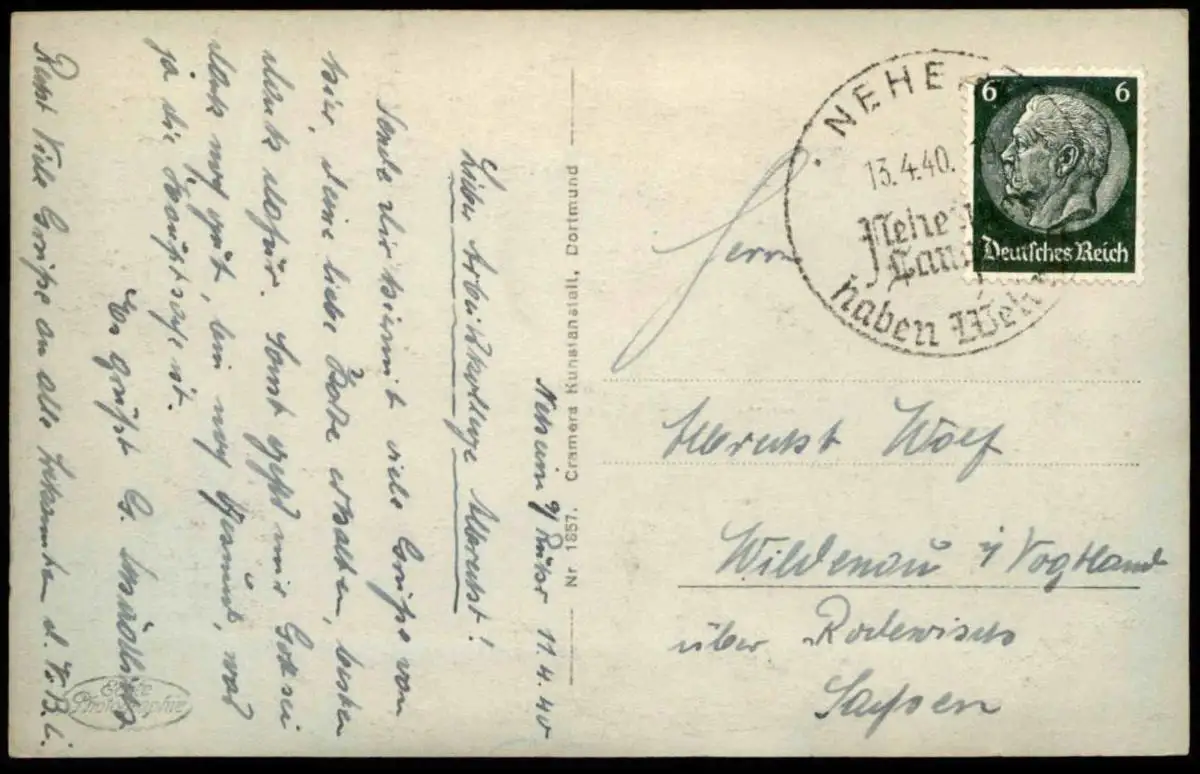 Neheim a/Ruhr 11.4.40
Lieber Arbeitskollege Albrecht!
Sende dir hiermit viele Grüße von
hier, deine liebe Karte erhalten, besten
dank dafür. Sonst geht mir Gott sei
dank noch gut, bin noch Gesund, was
ja die Hauptsache ist.
Es grüßt G.
Recht Viele Grüße an alle bekannten d. V. B. L.
Echte
Photographie
Nr 1857. Cramers Kunstanstalt, Dortmund
NEHE
13.4.40.
Nehe
haben
6 6
Deutsches Reich
Herrn
Albrecht Wolf
Wildenau i/Vogtland
über Rodewisch
Sachsen